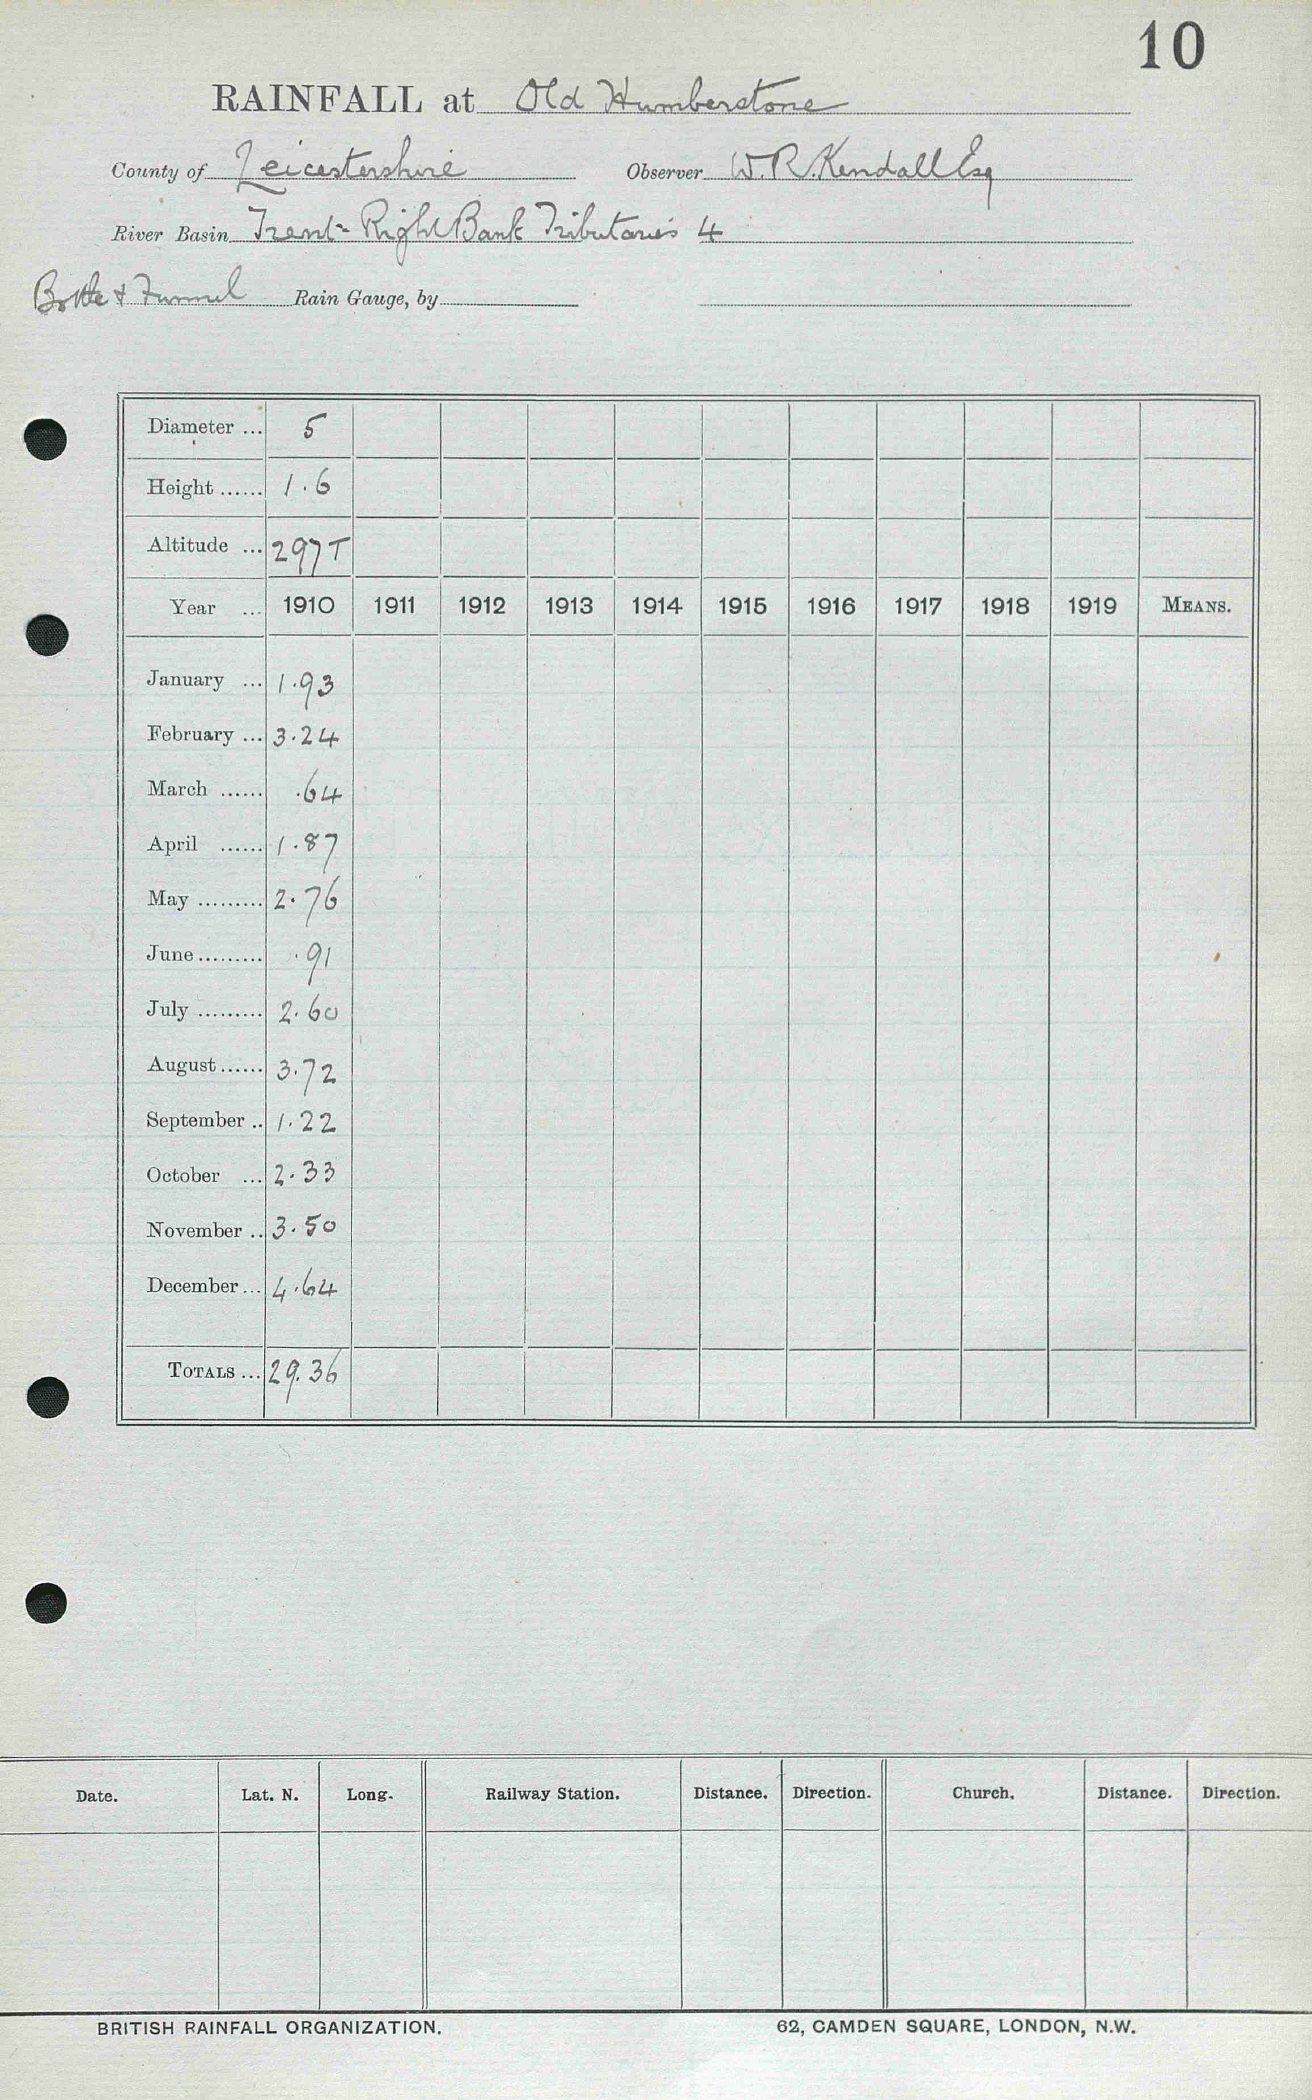 10
RAINFALL at Old Humberstone
County of Leicestershire Observer W. R. Kendall Esq
River Basin Trent - Right Bank Tributaries 4
Bottle & Funnel Rain Gauge, by
Diameter ... 5
Height ...... 1.6
Altitude ... 297 T
Year ... 1910 1911 1912 1913 1914 1915 1916 1917 1918 1919 MEANS.
January ... 1.93
February ... 3.24
March ...... .64
April ...... 1.87
May ......... 2.76
June ......... .91
July ......... 2.60
August ...... 3.72
September .. 1.22
October ... 2.33
November .. 3.50
December ... 4.64
TOTALS ... 29.36
Date. Lat. N. Long. Railway Station. Distance. Direction. Church. Distance. Direction.
BRITISH RAINFALL ORGANIZATION. 62, CAMDEN SQUARE, LONDON, N.W.